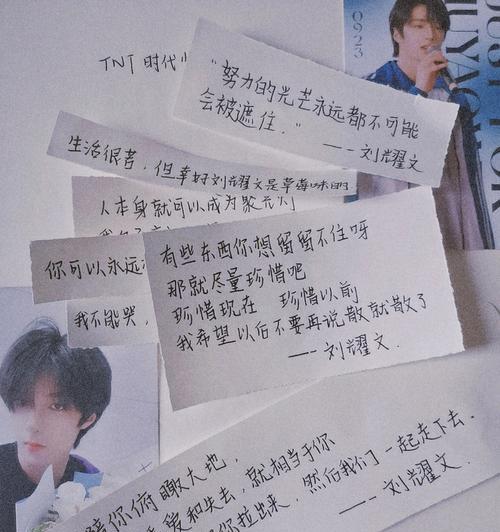 TNT 时代
0923
LIU YAO
"努力的光芒永远都不可能
会被遮住."
—— 刘耀文
生活很苦，但幸好刘耀文是草莓味的
人本身就可以成为聚光灯
你可以永远
我不能哭，
有些东西你想留留不住呀
那就尽量珍惜吧
珍惜现在 珍惜以前
我希望以后不要再说散就散了
—— 刘耀文.
陪你俯瞰大地，
爱和失去，就相当于你
你拉出来，然后我们一起走下去.
—— 刘耀文.